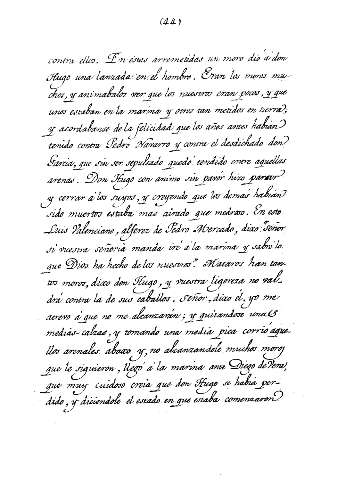 (44)
contra ellos. En estas arremetidas un moro dió á don
Hugo una lanzada en el hombro. Eran los moros mu-
chos, y animabalos ver que los nuestros eran pocos, y que
unos estaban en la marina y otros tan metidos en tierra,
y acordabanse de la felicidad que los años antes habian
tenido contra Pedro Navarro y contra el desdichado don
Garcia, que sin ser sepultado quedó tendido entre aquellas
arenas. Don Hugo con animo sin pavor hizo parar
y cerrar a los suyos, y creyendo que los demas habian
sido muertos estaba mas airado que medroso. En esto
Luis Valenciano, alferez de Pedro Mercado, dixo "Señor
si vuestra señoria manda iré á la marina y sabré lo
que Dios ha hecho de los nuestros." Mataros han tan-
tos moros, dixo don Hugo, y vuestra ligereza no val-
drá contra la de sus caballos. Señor, dixo él, yo me
atrevo á que no me alcanzarán; y quitandose unas
medias-calzas, y tomando una media pica corrió aque-
llos arenales abaxo y, no alcanzandole muchos moros
que le siguieron, llegó á la marina ante Diego de Vera,
que muy cuidoso creia que don Hugo se habia per-
dido, y diciendole el estado en que estaba comenzaron